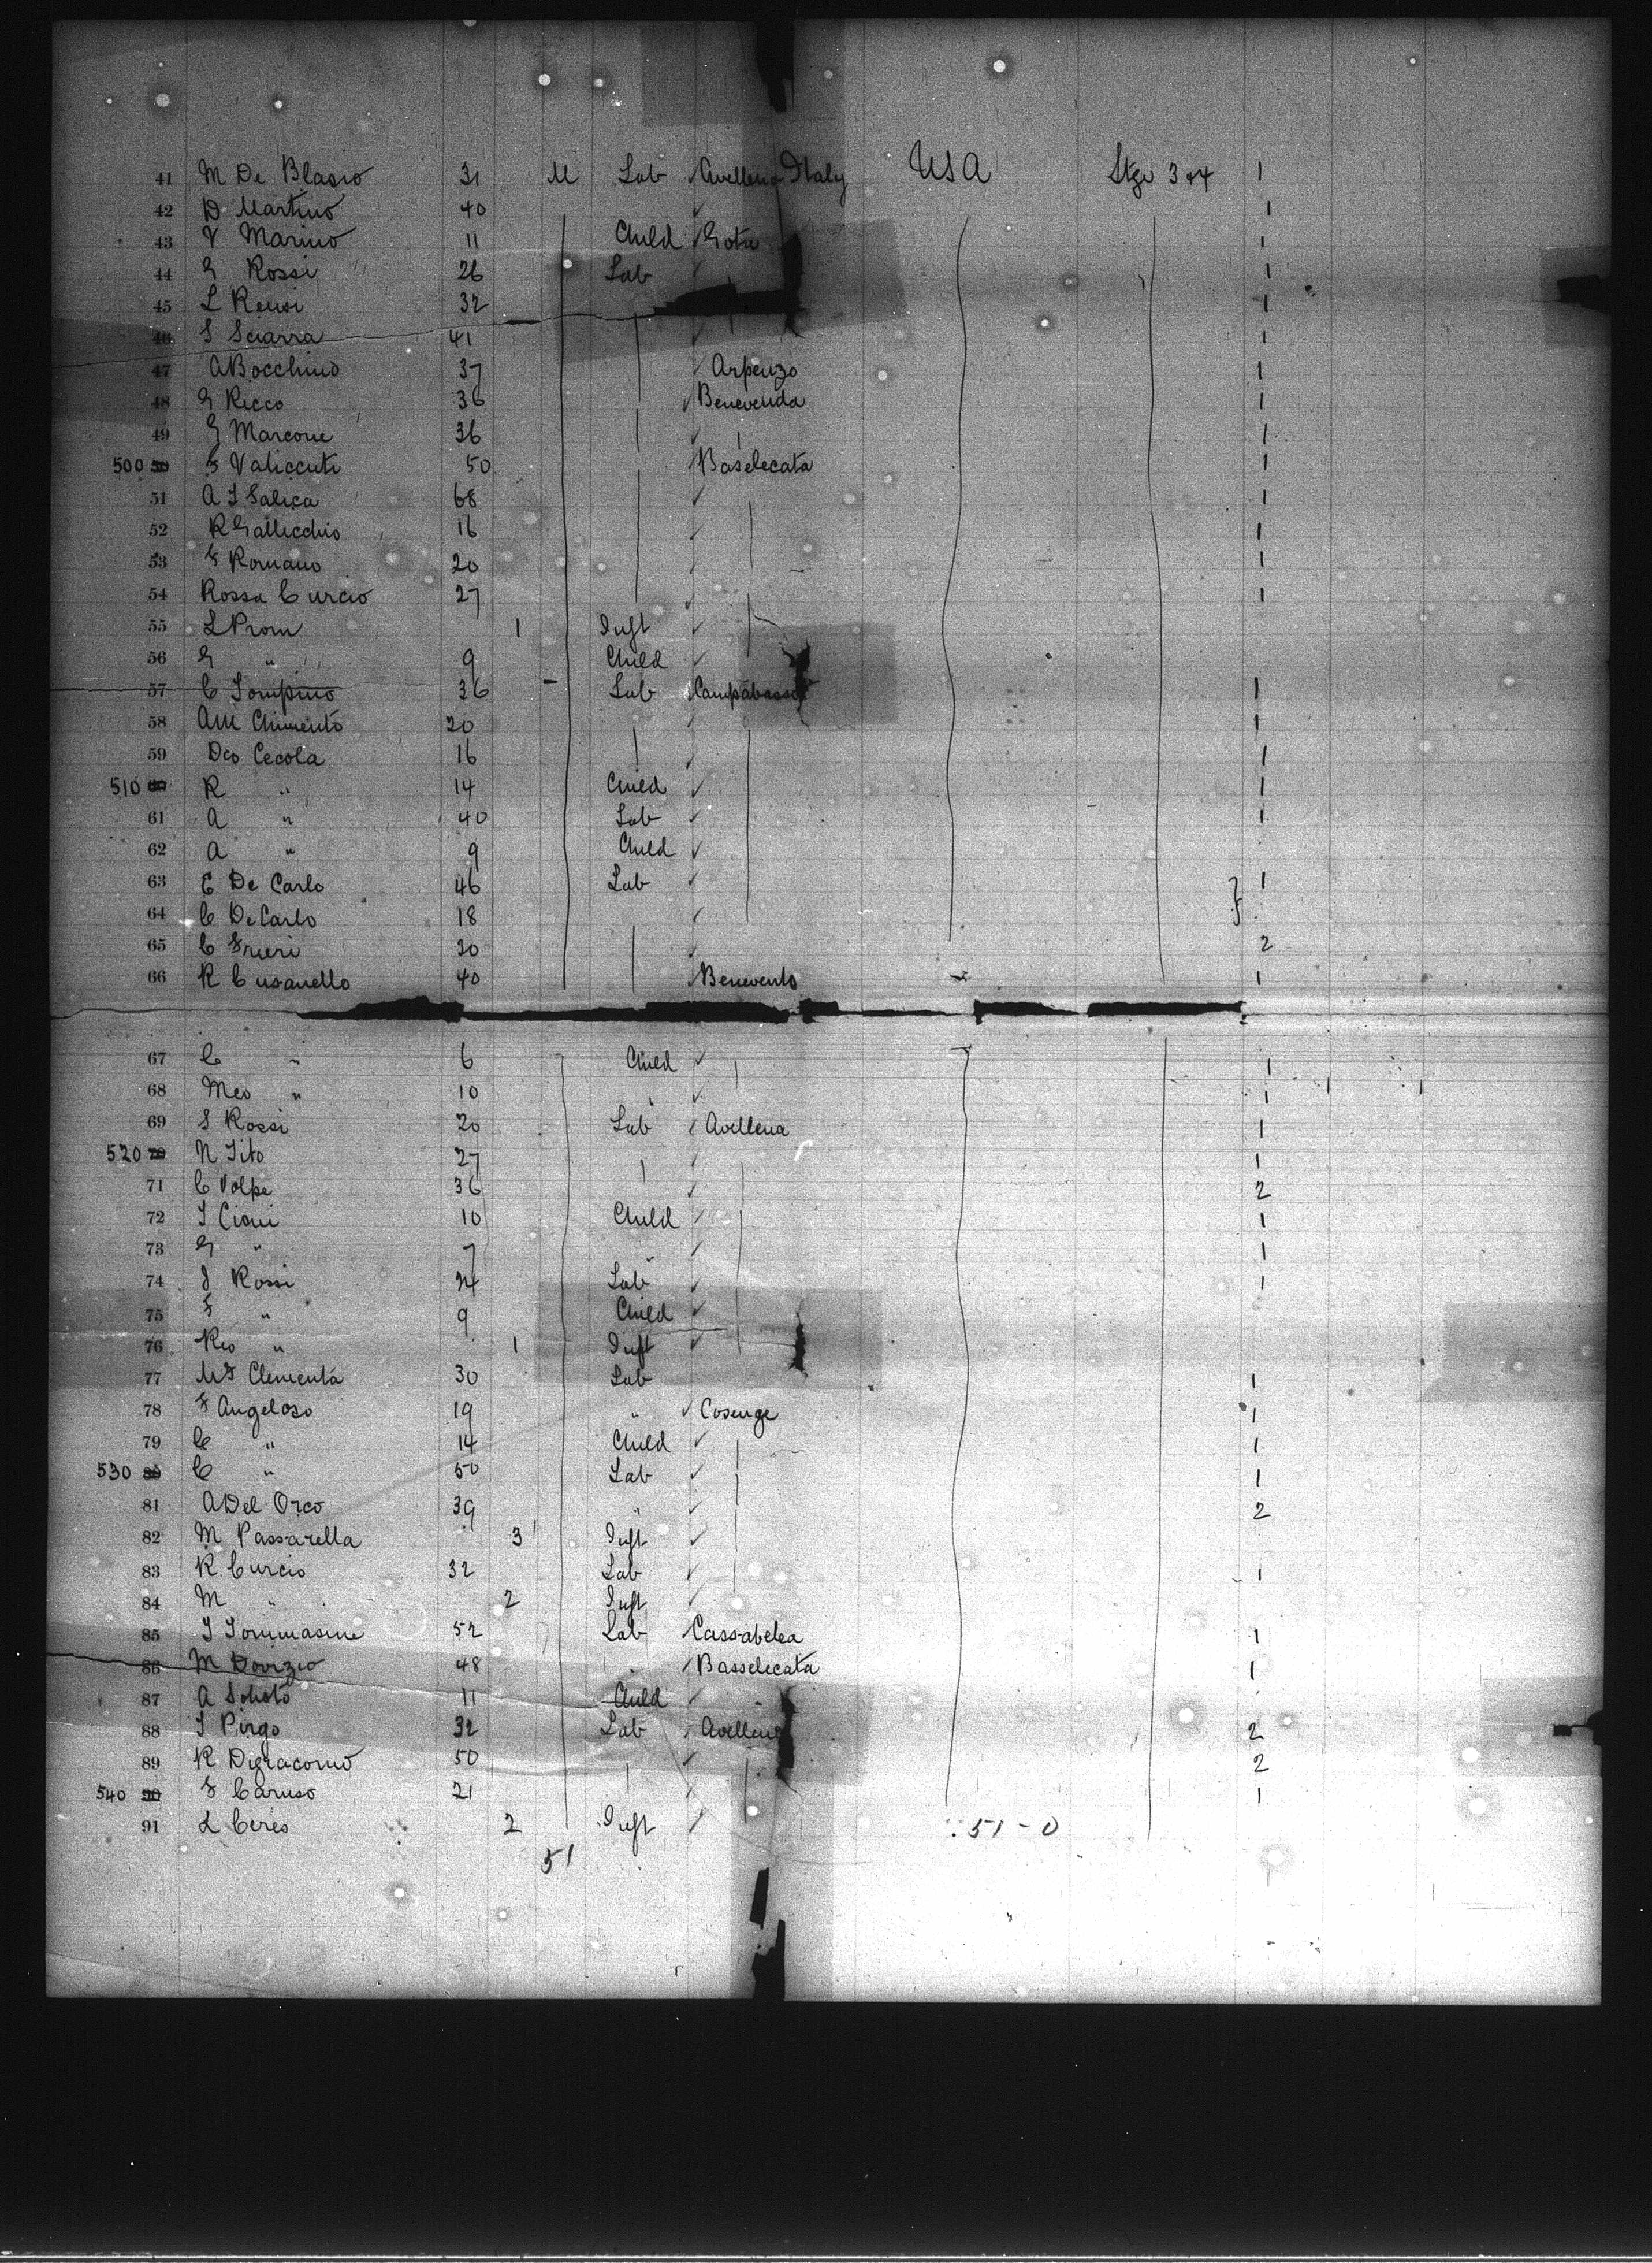 41 M De Blasio 31 M Lab Avellena Italy USA Stge 3 & 4 1
42 D Martino 40 1
43 V Marino 11 Child Gota 1
44 G Rossi 26 Lab 1
45 L Renzi 32 1
46 S Sciarra 41 1
47 A Bocchino 37 Arpenzo 1
48 G Ricco 36 Benevenda 1
49 G Marcone 36 1
500 50 F Valiccuti 50 Baselecata 1
51 A I Salica 68 1
52 R Gallicchio 16 1
53 F Romano 20 1
54 Rossa Curcio 27 1
55 L Prom 1 Inft
56 G " 9 Child
57 C Tompino 36 Lab Campabasso 1
58 AM Chimento 20 1
59 Dco Cecola 16 1
510 60 R " 14 Child 1
61 A " 40 Lab 1
62 A " 9 Child
63 E De Carlo 46 Lab 1
64 C DeCarlo 18
65 C Frieri 30 2
66 R Cusanello 40 Benevento 1
67 C " 6 Child 1
68 Meo " 10 " 1
69 S Rossi 20 Lab Avellena 1
520 70 N Tito 27 1
71 C Volpe 36 2
72 I Ciani 10 Child 1
73 G " 7 " 1
74 J Rossi 24 Lab 1
75 F " 9 Child
76 Rio " 1 Inft
77 Clementa 30 Lab 1
78 F Angeloso 19 " Cosenge 1
79 C " 14 Child 1
530 80 C " 50 Lab 1
81 A Del Orco 39 " 2
82 M Passarella 3 Inft
83 R Curcio 32 Lab 1
84 M " 2 Inft
85 T Tommasine 52 Lab Cassabelea 1
86 M Dovizio 48 " Basselecata 1
87 A Soloto 11 Child "
88 I Pirgo 32 Lab Avellena 2
89 R Digiacomo 50 2
540 90 F Caruso 21 1
91 L Ceres 2 Inft 51 - 0
51